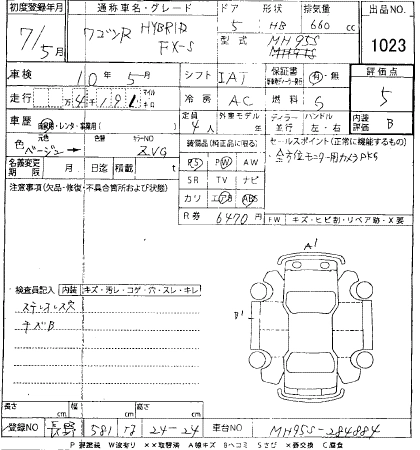 初度登録年月 通称車名・グレード ドア 形状 排気量 出品NO.
7/5月 ワゴンR HYBRID FX-S 5 HB 660 cc 1023
型式 MH95S
車検 10年5月 シフト IAT 保証書 有・無 評価点
走行 マイル キロ 冷房 AC 燃料 5
車歴 自家用・レンタ・事業用 定員 4人 外装モデル ディーラー 並行 ハンドル 左・右 内装評価 B
色 元色 ベージュ 色替 カラーNO ZVG 装備品(純正品に限る) セールスポイント(正常に機能するもの)
PS PW AW ・全方位モニター用カメラPKG
名義変更期限 月 日迄 積載 t SR TV ナビ
注意事項(欠品・修復・不具合箇所および状態) カワ エアB ABS
R券 6470円 FW キズ・ヒビ割・リペア跡・X要
A1
B1
検査員記入 内装 キズ・汚レ・コゲ・穴・スレ・キレ
キズB
長さ cm 幅 cm 高さ cm
登録NO 長野 581 24-24 車台NO MH95S-284884
P 要塗装 W波有り ××取替済 A線キズ Bヘコミ Sさび ×要交換 C腐食